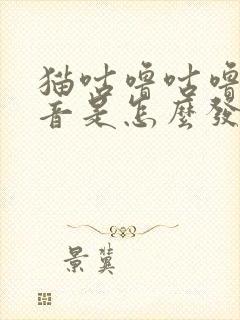 猫咕噜咕噜
音是怎麼發
景冀